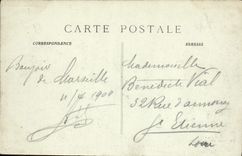 CARTE POSTALE
CORRESPONDANCE
ADRESSE
Bonjour
de Marseille
11/4 1908
Mademoiselle
Bénédicte Vial
32 Rue d'annonay
St Etienne
Loire